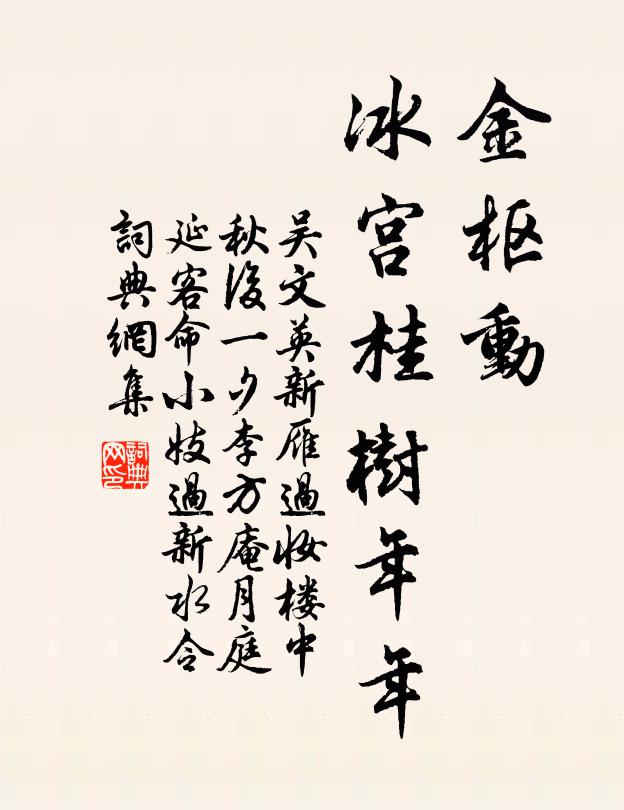 金枢動
冰宫桂樹年年
吴文英新雁過妝楼中
秋後一夕李方庵月庭
延客命小妓過新水令
詞典網集
詞典
网印